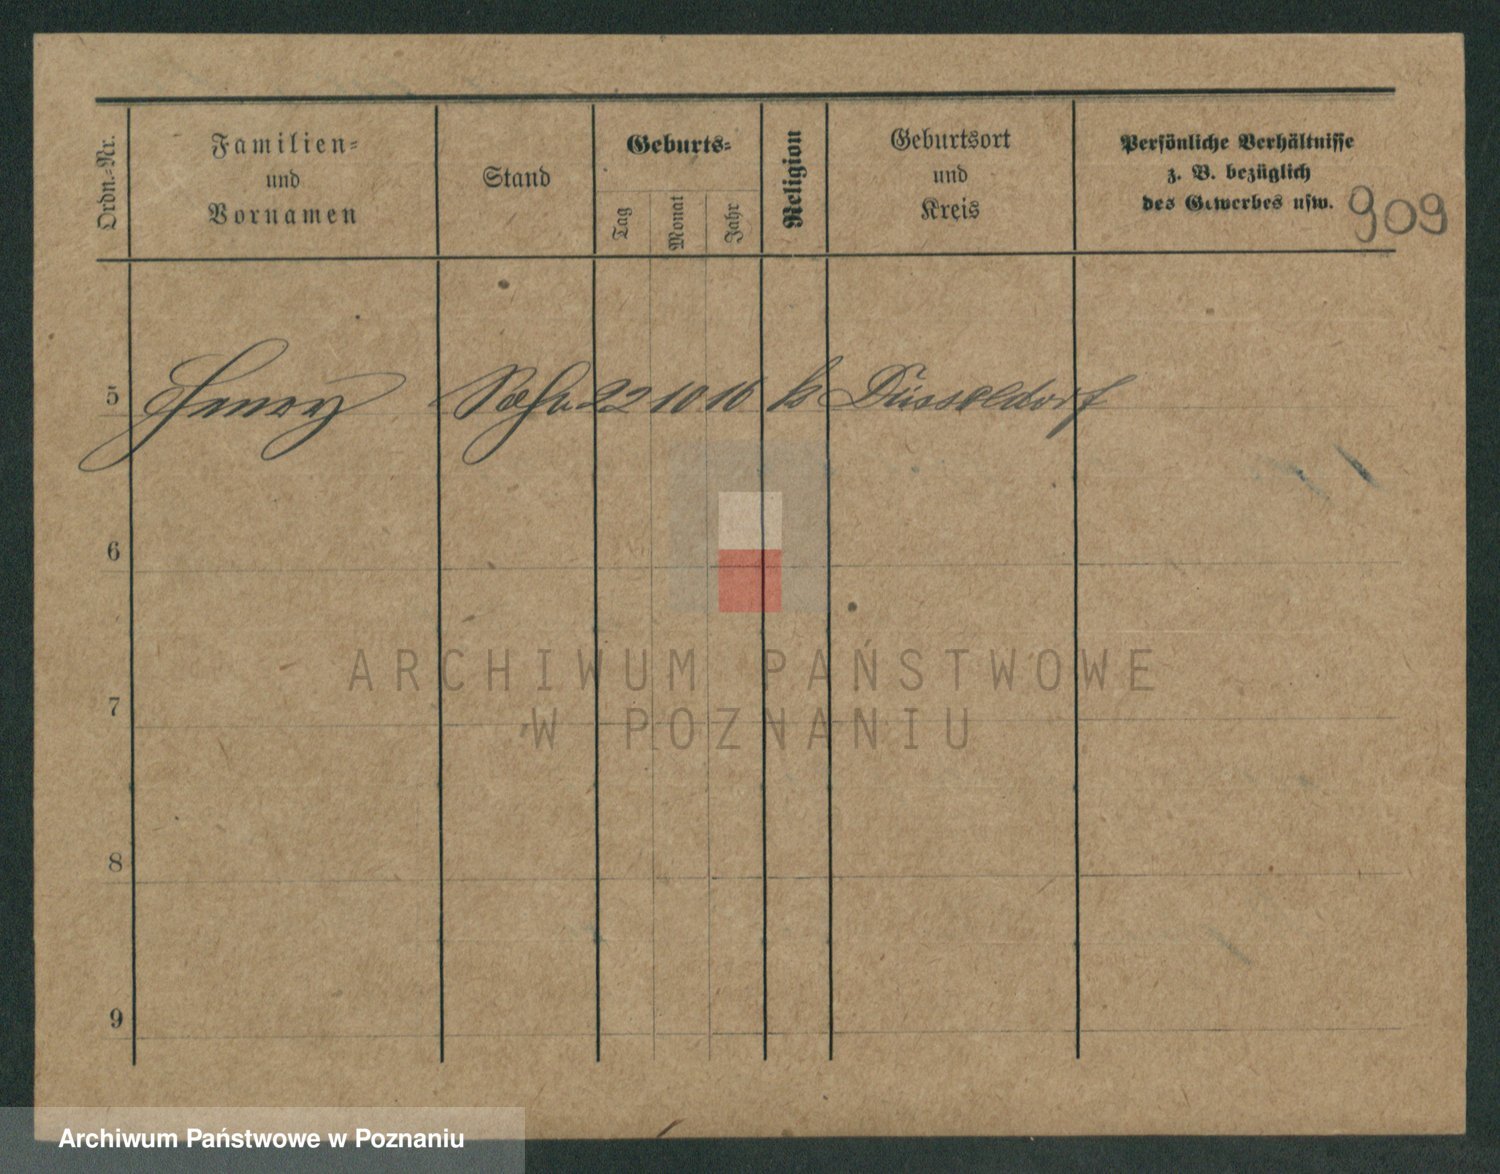 Ordn.-Nr.
Familien-
und
Vornamen
Stand
Geburts-
Tag
Monat
Jahr
Religion
Geburtsort
und
Kreis
Persönliche Verhältnisse
z. B. bezüglich
des Gewerbes usw.
909
5 Henry Sohn 22 10 16 k Düsseldorf
6
7
8
9
ARCHIWUM PAŃSTWOWE
W POZNANIU
Archiwum Państwowe w Poznaniu